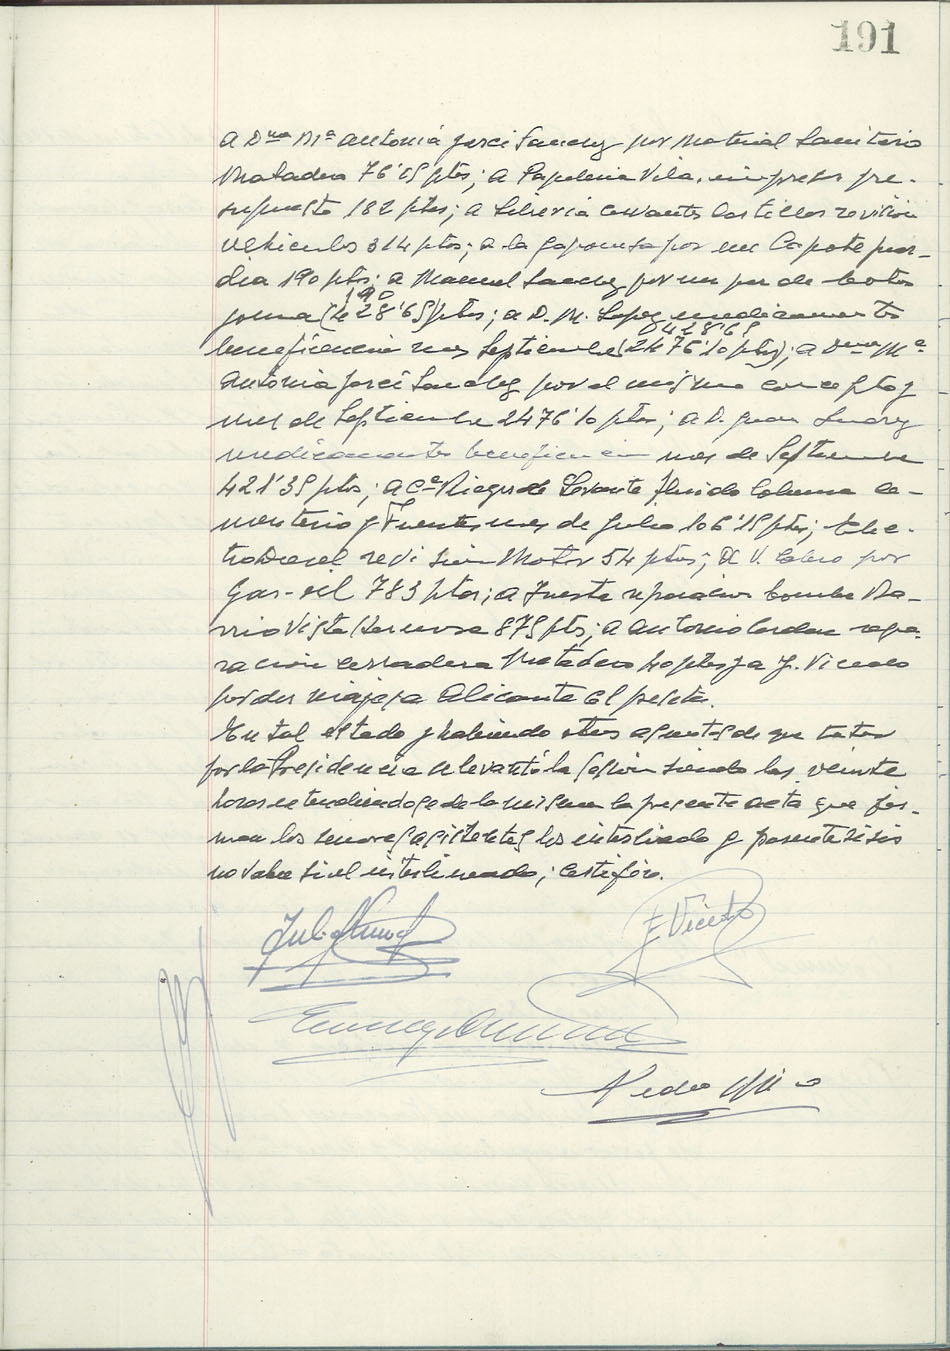 191
a Dña Mª Antonia Garcí Sanchez por Material Sanitario
Matadero 76'15 ptas; a Papeleria Vila, impresos pre-
supuesto 182 ptas; a Librería Cervantes Castillos revision
vehiculos 314 ptas; a la por un Capote guar-
dia 190 ptas; a Manuel Sanchez por un par de botas
190
goma (428'65) ptas; a D. M. Lopez medicamentos
428'65
beneficencia mes Septiembre (2476'10 ptas); a Dña Mª
Antonia Garcí Sanchez por el mismo concepto y
mes de Septiembre 2476'10 ptas; a D. Juan Suarez
medicamentos beneficencia mes de Septiembre
421'35 ptas; a Cª Riegos de Levante fluido Columna ce-
menterio y Fuentes mes de Julio 106'15 ptas; Elec-
troDiesel revision Motor 54 ptas; a V. por
Gas-oil 783 ptas; a Fuster reparacion bomba Ba-
rrio Vista Hermosa 875 pts; a Antonio Cerdan repa-
racion cerradura Matadero 40 ptas y a J. Vicedo
por dos viajes a Alicante pesetas.
En tal estado y habiendo otros asuntos de que tratar
por la Presidencia se levantó la sesion siendo las veinte
horas estendiendose de la misma la presente acta que fir-
man los señores asistentes los interlineado y parentesisis
no vale si el interlineado; certifico.
E Vicedo
Pedro